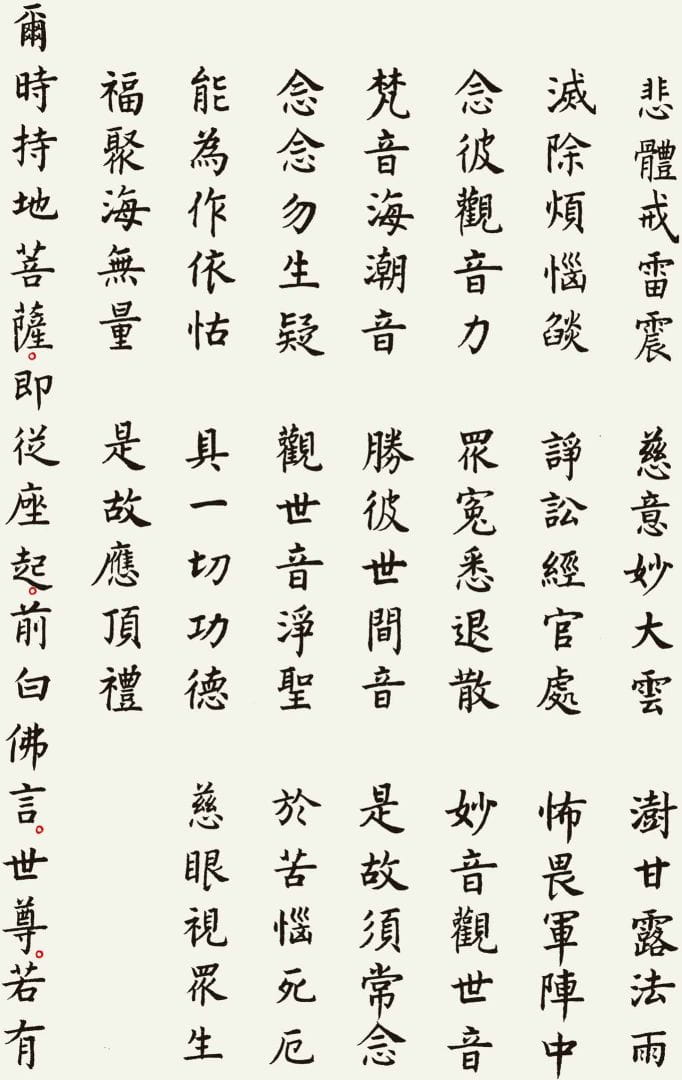 悲體戒雷震　慈意妙大雲　澍甘露法雨
滅除煩惱燄　諍訟經官處　怖畏軍陣中
念彼觀音力　眾寃悉退散　妙音觀世音
梵音海潮音　勝彼世間音　是故須常念
念念勿生疑　觀世音淨聖　於苦惱死厄
能為作依怙　具一切功德　慈眼視眾生
福聚海無量　是故應頂禮
爾時持地菩薩。即從座起。前白佛言。世尊。若有